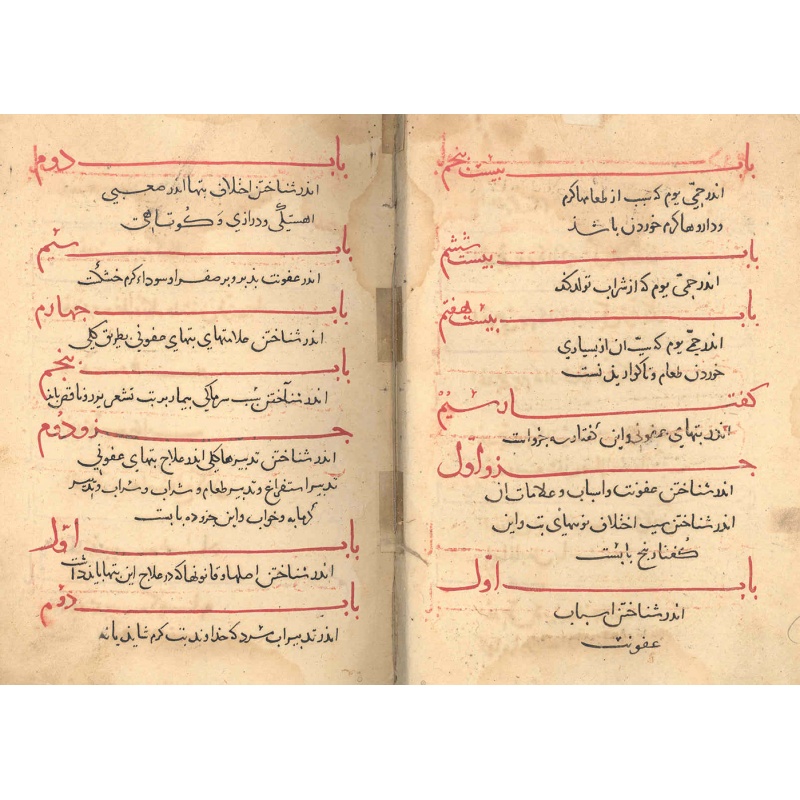 باب بیست پنجم
اندر حمّی یوم که سبب از طعامهاء کرم
وداروهاء کرم خوردن باشذ
باب بیست ششم
اندر حمّی یوم که از شراب تولد کند
باب بیست هفتم
اندر حمّی یوم که سبب ان از بسیاری
خوردن طعام و ناکواریذن تست
کفتار سیُم
اندر تبهای عفونی واین کفتار سه جزواست
جزو اول
اندر شناختن عفونت واسباب وعلامات ان
اندر شناختن سبب اختلاف نوبتهای تب واین
کُفتار پنج بابست
باب اول
اندر شناختن اسباب
عفونت
باب دوم
اندر شناختن اختلاف تبها اندر صعبی
اهستکی ودرازی وکوتاهی
باب سیُم
اندر عفونت بذیرو بر صفرا وسوداء کرم خشکست
باب جهارم
اندر شناختن علامتهای تبهای عفونی بطریق کلی
باب بنجم
اندر شناختن سبب سرماکی بیمار بر تب
جزو دوم
اندر شناختن تدبیرهاکلی اندر علاج تبهای عفونی
تدبیر استفراغ وتدبیر طعام وشراب وشراب وتدبیر
کرمابه وخواب واین جزو ده بابست
باب اول
اندر شناختن اصلها وقانونها که در علاج این تبها
باب دوم
اندر تدبیر اب سرد که خذاوند تب کرم شایذ یا نه